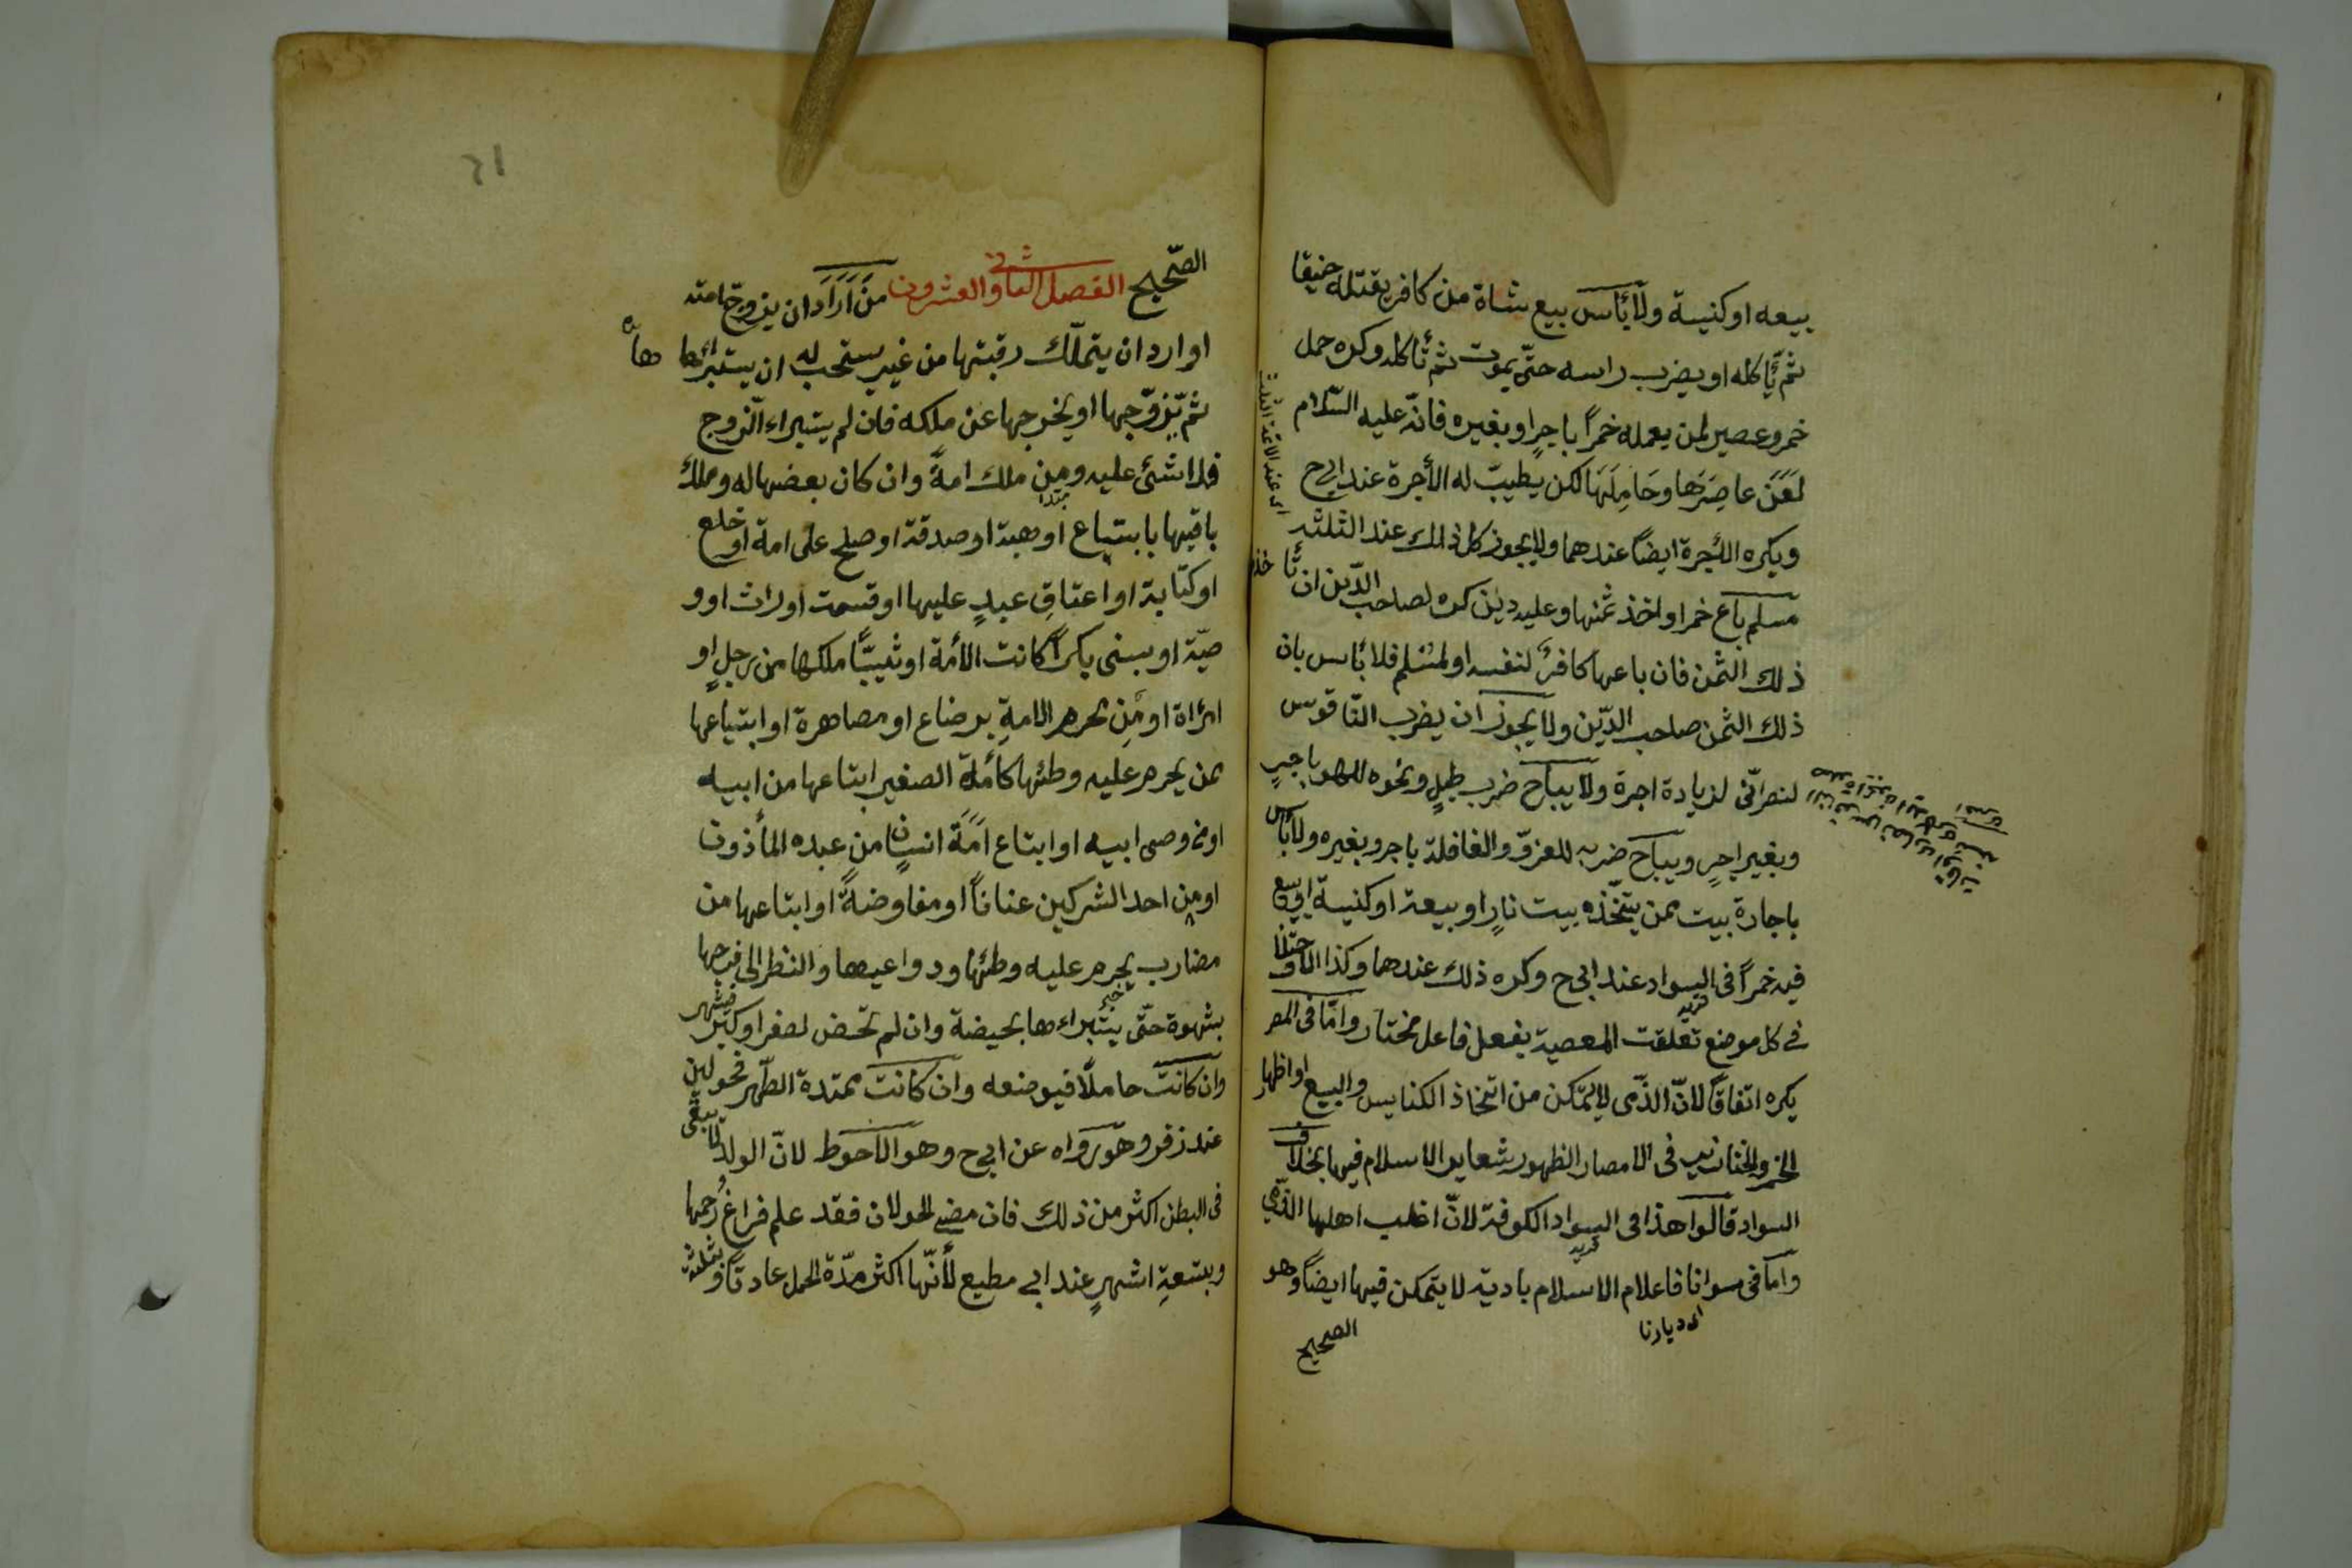 بيعه او كنيسة ولا بأس بيع شاة من كافر يقتله خنقا
ثم يأكله او يضرب راسه حتّى يموت ثم تأكله وكره حمل
خمر وعصير لمن يعمله خمرًا باجرٍ او بغيره فانّه عليه السّلام
لَعَنَ عاصِرَها وحَامِلَهَا لكن يطيب له الأجرة عند ابي ح
ويكره الأجرة ايضًا عندهما ولا يجوز كل ذلك عند الثلثه
مسلم باع خمرا واخذ ثمنها وعليه دين كره لصاحب الدّين ان يأخذ
ذلك الثمن فان باعها كافر لنفسه او لمسلم فلا بأس بان
ذلك الثمن صاحب الدّين ولا يجوز ان يضرب النّاقوس
لنصرانّى لزيادة اجرة ولا يباح ضرب طبلٍ ونحوه للهو باجرٍ
وبغير اجرٍ ويباح ضربه للغزوّ والغافلة باجر وبغيره ولا بأس
باجارة بيت ممن يتّخذه بيت نارٍ او بيعة او كنيسة او يبيع
فيه خمرًا فى السواد عند ابى ح وكره ذلك عندهما وكذا
فى كل موضع تعلقت المعصية بفعل فاعل مختار وامّا فى المصر
يكره اتفاقًا لانّ الذّمى لا يتمكن من اتّخاذ الكنايس والبيع او اظهار
الخمر والخنازير فى الامصار لظهور شعاير الاسلام فيها بخلاف
السواد قالوا هذا فى السواد الكوفة لانّ اغلب اهلها الذّمي
وامّا فى سوادنا فاعلام الاسلام بادية لا يتمكن فيها ايضًا وهو
اى ديارنا
الصحيح
اى عند الائمة الثلثة
الصّحيح الفصل الثانى والعشرون منَ ارَادَ ان يزوجّ امته
او اراد ان يتملّك رقبتها من غير يستحب له ان يستبرائها
ثم يزوّجها او يخرجها عن ملكه فان لم يستبراء الزوج
فلا شئ عليه ومن ملك امةً وان كان بعضها له وملك
باقيها بابتياع او هبة او صدقة او صلح على امة او خلع
او كتابة او اعتاقِ عبدٍ عليها او قسمت او راث او و
صيّة او بسبى بكرًا كانت الأمة او ثيبًّا ملكها من رجلٍ او
امرأة او مِن تحرم الامةِ برضاع او مصاهرة او ابتياعها
ممن يحرم عليه وطئها كأمة الصغير ابتاعها من ابيه
او من وصى ابيه او ابتاع امَةَ انسانٍ من عبده المأذون
او من احد الشركين عنانًا او مفاوضةً او ابتاعها من
مضارب يحرم عليه وطئها ودواعيها والنظر الى فرجها
بشهوة حتّى يستبراءها بحيضة وان لم تحض لصغر او كبر فبشهر
وان كانت حاملًا فبوضعه وان كانت ممتدة الطّهر فحولين
عند زفر وهو رواه عن ابى ح وهو الاحوط لانّ الولد لا يبقى
فى البطن اكثر من ذلك فان مضى الحولان فقد علم فراغ رحمها
وبتسعةِ اشهرٍ عند ابي مطيع لأنّها اكثر مدّة الحمل عادةً وبثلثة